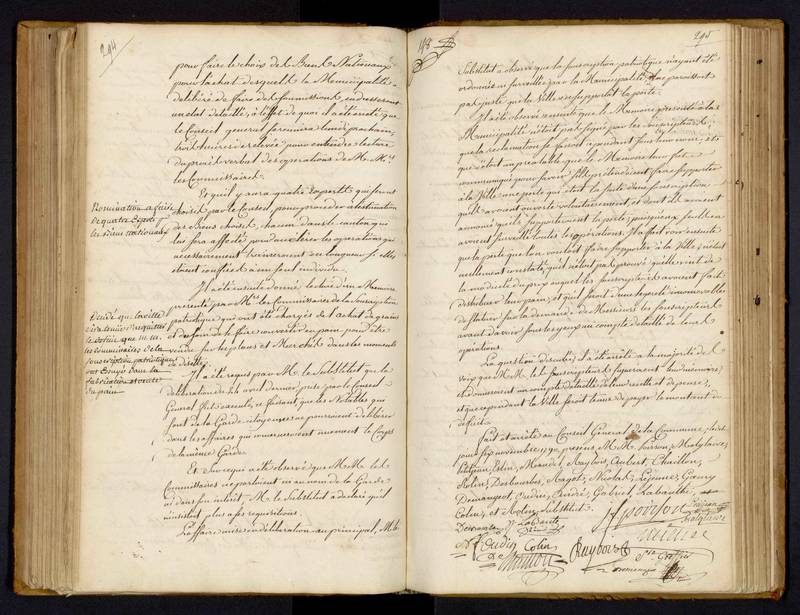 294
pour faire le choix des Biens Nationaux
pour l'achat desquels la Municipalité a
délibéré de faire des soumissions, en dresseront
un état détaillé, à l'effet de quoi il a été arrêté que
le Conseil général se réunira lundi prochain,
trois heures de relevée pour entendre lecture
du procès verbal des operations de M.M.rs
les Commissaires.
Nomination à faire
de quatre Experts pr
les Biens nationaux
Et qu'il y aura quatre Experts qui seront
choisis par le Conseil, pour procéder à l'estimation
des Biens choisis, chacun dans le canton qui
lui sera affecté pour accélérer les operations qui
necessairement traineroient en longueur si elles
étoient confiées à un seul individu.
Décidé que la ville
sera tenue d'acquitter
le déficit que M.M.
les Commissaires de la
souscription patriotique
ont essuyé dans la
fabrication et vente
du pain
Il a été ensuite donné lecture d'un Mémoire
presenté par M.rs les Commissaires de la souscription
patriotique qui ont été chargés de l'achat de grains
et du soin de le faire convertir en pain pour être
vendu sur les places et Marchés dans les moments
de disette.
Il a été requis par M. le Substitut que la
deliberation du avril dernier prise par le Conseil
General fut executée, ce faisant, que les Notables qui
font de la Garde citoyenne ne pourroient délibérer
dans les affaires qui concerneroient nuement le Corps
de la même Garde.
Et sur ce qui a été observé que M.M. les
Commissaires ne parloient ni au nom de la Garde
ni dans son intérêt, M. le Substitut a déclaré qu'il
n'insistoit plus à ses requisitions.
L'affaire mise en délibération au principal, M. le
148
295
Substitut a observé que la souscription patriotique n'ayant été
ordonnée ni surveillée par la Municipalité, il ne paroissoit
pas juste que la Ville en supportât la perte.
Il a été observé ensuite que le Mémoire presenté à la
Municipalité n'étoit pas signé par les souscripteurs,
que la réclamation se faisoit cependant sous leur nom, et
que c'étoit un préalable que le Mémoire leur fut
communiqué pour savoir s'ils prétendoient faire supporter
à la Ville une perte qui étoit la suite d'une souscription
qu'ils avoient ouverte volontairement, et dont ils avoient
annoncé qu'ils supporteroient la perte, puisqu'eux seuls en
avoient surveillé toutes les opérations. Il a fait voir ensuite
que la perte que l'on vouloit faire supporter à la Ville n'étoit
nullement constatée, qu'il n'étoit pas prouvé qu'elle vint de
la modicité du prix auquel les souscripteurs avoient fait
distribuer leur pain, et qu'il seroit d'une legereté
de statuer sur la demande de Messieurs les souscripteurs
avant d'avoir sous les yeux un compte détaillé de leurs
opérations.
La question discutée, il a été arrêté à la majorité des
voix que M.M. les souscripteurs signeroient leur mémoire,
et donneroient un compte détaillé de leur recette et dépense,
et que cependant la Ville seroit tenue de payer le montant du
déficit.
Fait et arrêté au Conseil General de la Commune, le
jour six novembre 1790, présens M.M. Poirson, Malglaive,
Mandel, Raybois, Aubert, Chaillon,
Rolin, Desbourbes, Nicolas, Lejeune,
Demangeot, Oudin, Gabriel, Labauthe,
Colin, et Rolin, Substitut.
Poirson
Malglaive
Oudin
Colin
Raybois